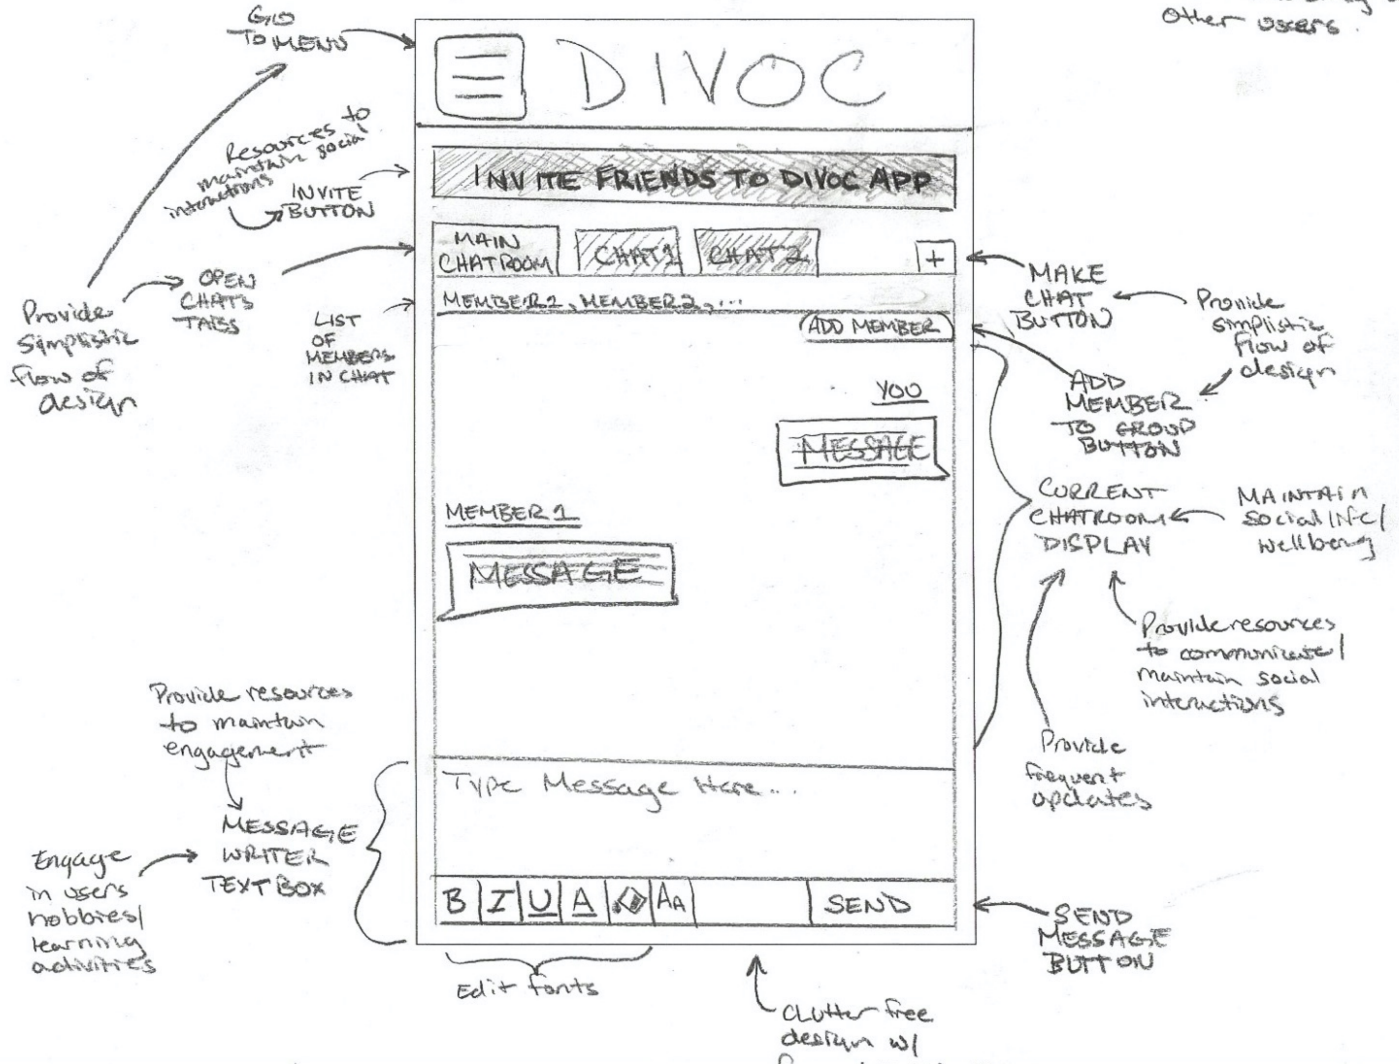 Other users.
GO
TO MENU
DIVOC
Resources to
maintain social
interactions
INVITE
BUTTON
INVITE FRIENDS TO DIVOC APP
MAIN
CHATROOM
CHAT 1
CHAT 2
+
OPEN
CHATS
TABS
MAKE
CHAT
BUTTON
Provide
simplistic
flow of
design
Provide
simplistic
flow of
design
LIST
OF
MEMBERS
IN CHAT
MEMBER 1, MEMBER 2, ...
ADD MEMBER
ADD
MEMBER
TO GROUP
BUTTON
YOU
MESSAGE
MEMBER 1
MESSAGE
CURRENT
CHATROOM
DISPLAY
MAINTAIN
social
wellbeing
Provide resources
to communicate/
maintain social
interactions
Provide
frequent
updates
Provide resources
to maintain
engagement
MESSAGE
WRITER
TEXT BOX
Engage
in users
hobbies/
learning
activities
Type Message Here...
B I U A AA
SEND
SEND
MESSAGE
BUTTON
Edit fonts
Clutter free
design w/